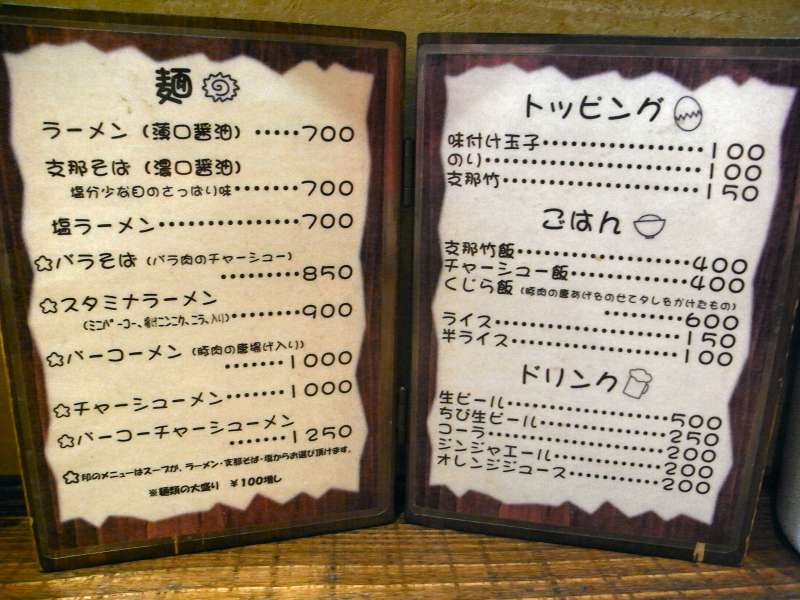 麺
ラーメン（薄口醤油）‥‥‥700
支那そば（濃口醤油）
塩分少な目のさっぱり味‥‥‥‥700
塩ラーメン‥‥‥‥‥‥‥700
☆バラそば（バラ肉のチャーシュー）
‥‥‥‥850
☆スタミナラーメン
（ミニパーコー、揚げニンニク、ニラ、入り）‥‥‥‥900
☆パーコーメン（豚肉の唐揚げ入り）
‥‥‥1000
☆チャーシューメン‥‥‥1000
☆パーコーチャーシューメン
‥‥‥1250
☆印のメニューはスープが、ラーメン・支那そば・塩からお選び頂けます。
※麺類の大盛り ￥100増し
トッピング
味付け玉子‥‥‥‥‥‥‥100
のり‥‥‥‥‥‥‥‥‥‥100
支那竹‥‥‥‥‥‥‥‥‥150
ごはん
支那竹飯‥‥‥‥‥‥‥‥400
チャーシュー飯‥‥‥‥‥400
くじら飯（豚肉の唐あげをのせてタレをかけたもの）
‥‥‥‥600
ライス‥‥‥‥‥‥‥‥‥150
半ライス‥‥‥‥‥‥‥‥100
ドリンク
生ビール‥‥‥‥‥‥‥‥500
ちび生ビール‥‥‥‥‥‥250
コーラ‥‥‥‥‥‥‥‥‥200
ジンジャエール‥‥‥‥‥200
オレンジジュース‥‥‥‥200